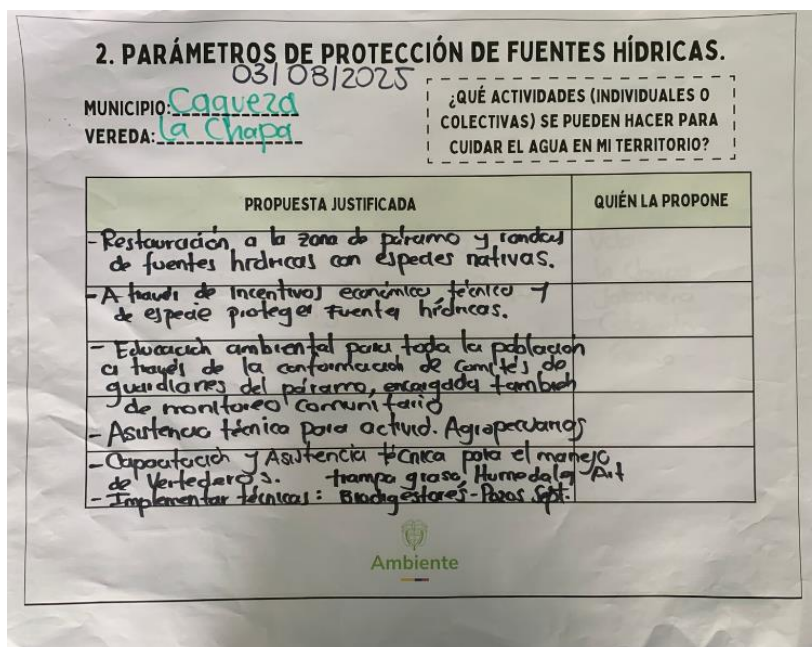 2. PARÁMETROS DE PROTECCIÓN DE FUENTES HÍDRICAS.
03/08/2025
MUNICIPIO: Caqueza
VEREDA: La Chapa
¿QUÉ ACTIVIDADES (INDIVIDUALES O
COLECTIVAS) SE PUEDEN HACER PARA
CUIDAR EL AGUA EN MI TERRITORIO?
PROPUESTA JUSTIFICADA
QUIÉN LA PROPONE
- Restauración a la zona de páramo y rondas
de fuentes hídricas con especies nativas.
- A través de Incentivos económico técnico y
de especie proteger Fuentes hídricas.
- Educación ambiental para toda la población
a través de la conformación de comités de
guardianes del páramo, encargados también
de monitoreo comunitario
- Asistencia técnica para activid. Agropecuarios
- Capacitación y Asistencia técnica para el manejo
de Vertederos. trampa grasa, Humedales Art
- Implementar técnicas: Biodigestores - Pozos Sept.
Ambiente